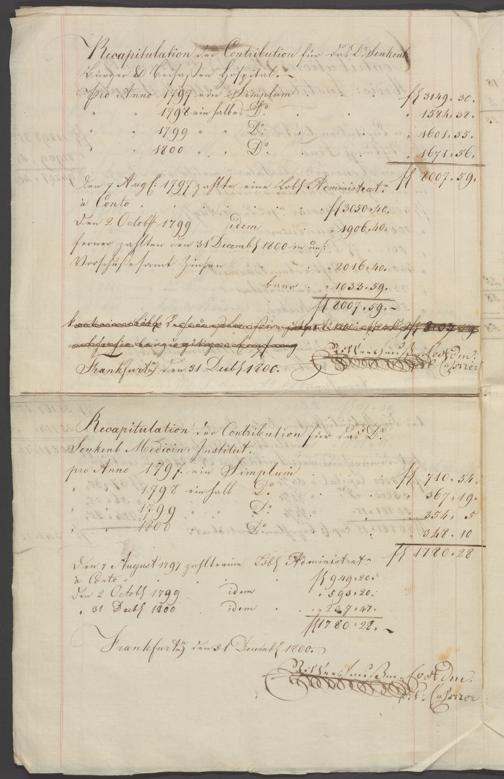 Recapitulation der Contribution für das Dr. Senkenb:
Bürger & Beysaßen Hospital.
pro Anno 1797 ein Simplum f 3149. 30.
" " 1798 ein halbes Do. " 1584. 38.
" " 1799 " " Do. " 1601. 55.
" " 1800 " " Do. " 1671. 56.
f 8007. 59.
Den 7 Aug: 1797 zahlte eine Löbl: Administrat:
à Conto f 3050. 40.
Den 2 Octobr 1799 idem " 1906. 40.
ferner zahlten den 31 Decembr 1800
Zinsen " 2016. 40.
baar " 1033. 59.
f 8007. 59.
Frankfurt den 31 Decbr 1800.
Cassirer
Recapitulation der Contribution für das Dr.
Senkenb Medicin: Institut.
pro Anno 1797 ein Simplum f 710. 54.
" " 1798 ein halb Do. " 367. 19.
" " 1799 " Do. " 354. 5
" " 1800 " Do. " 348. 10
f 1780. 28
Den 7 August 1797 zahlte eine Löbl Administrat:
à Conto f 949. 20.
Den 2 Octobr 1799 idem " 593. 20.
" 31 Decbr 1800 idem
f 1780. 28.
Frankfurt den 31 Decembr 1800.
Cassirer